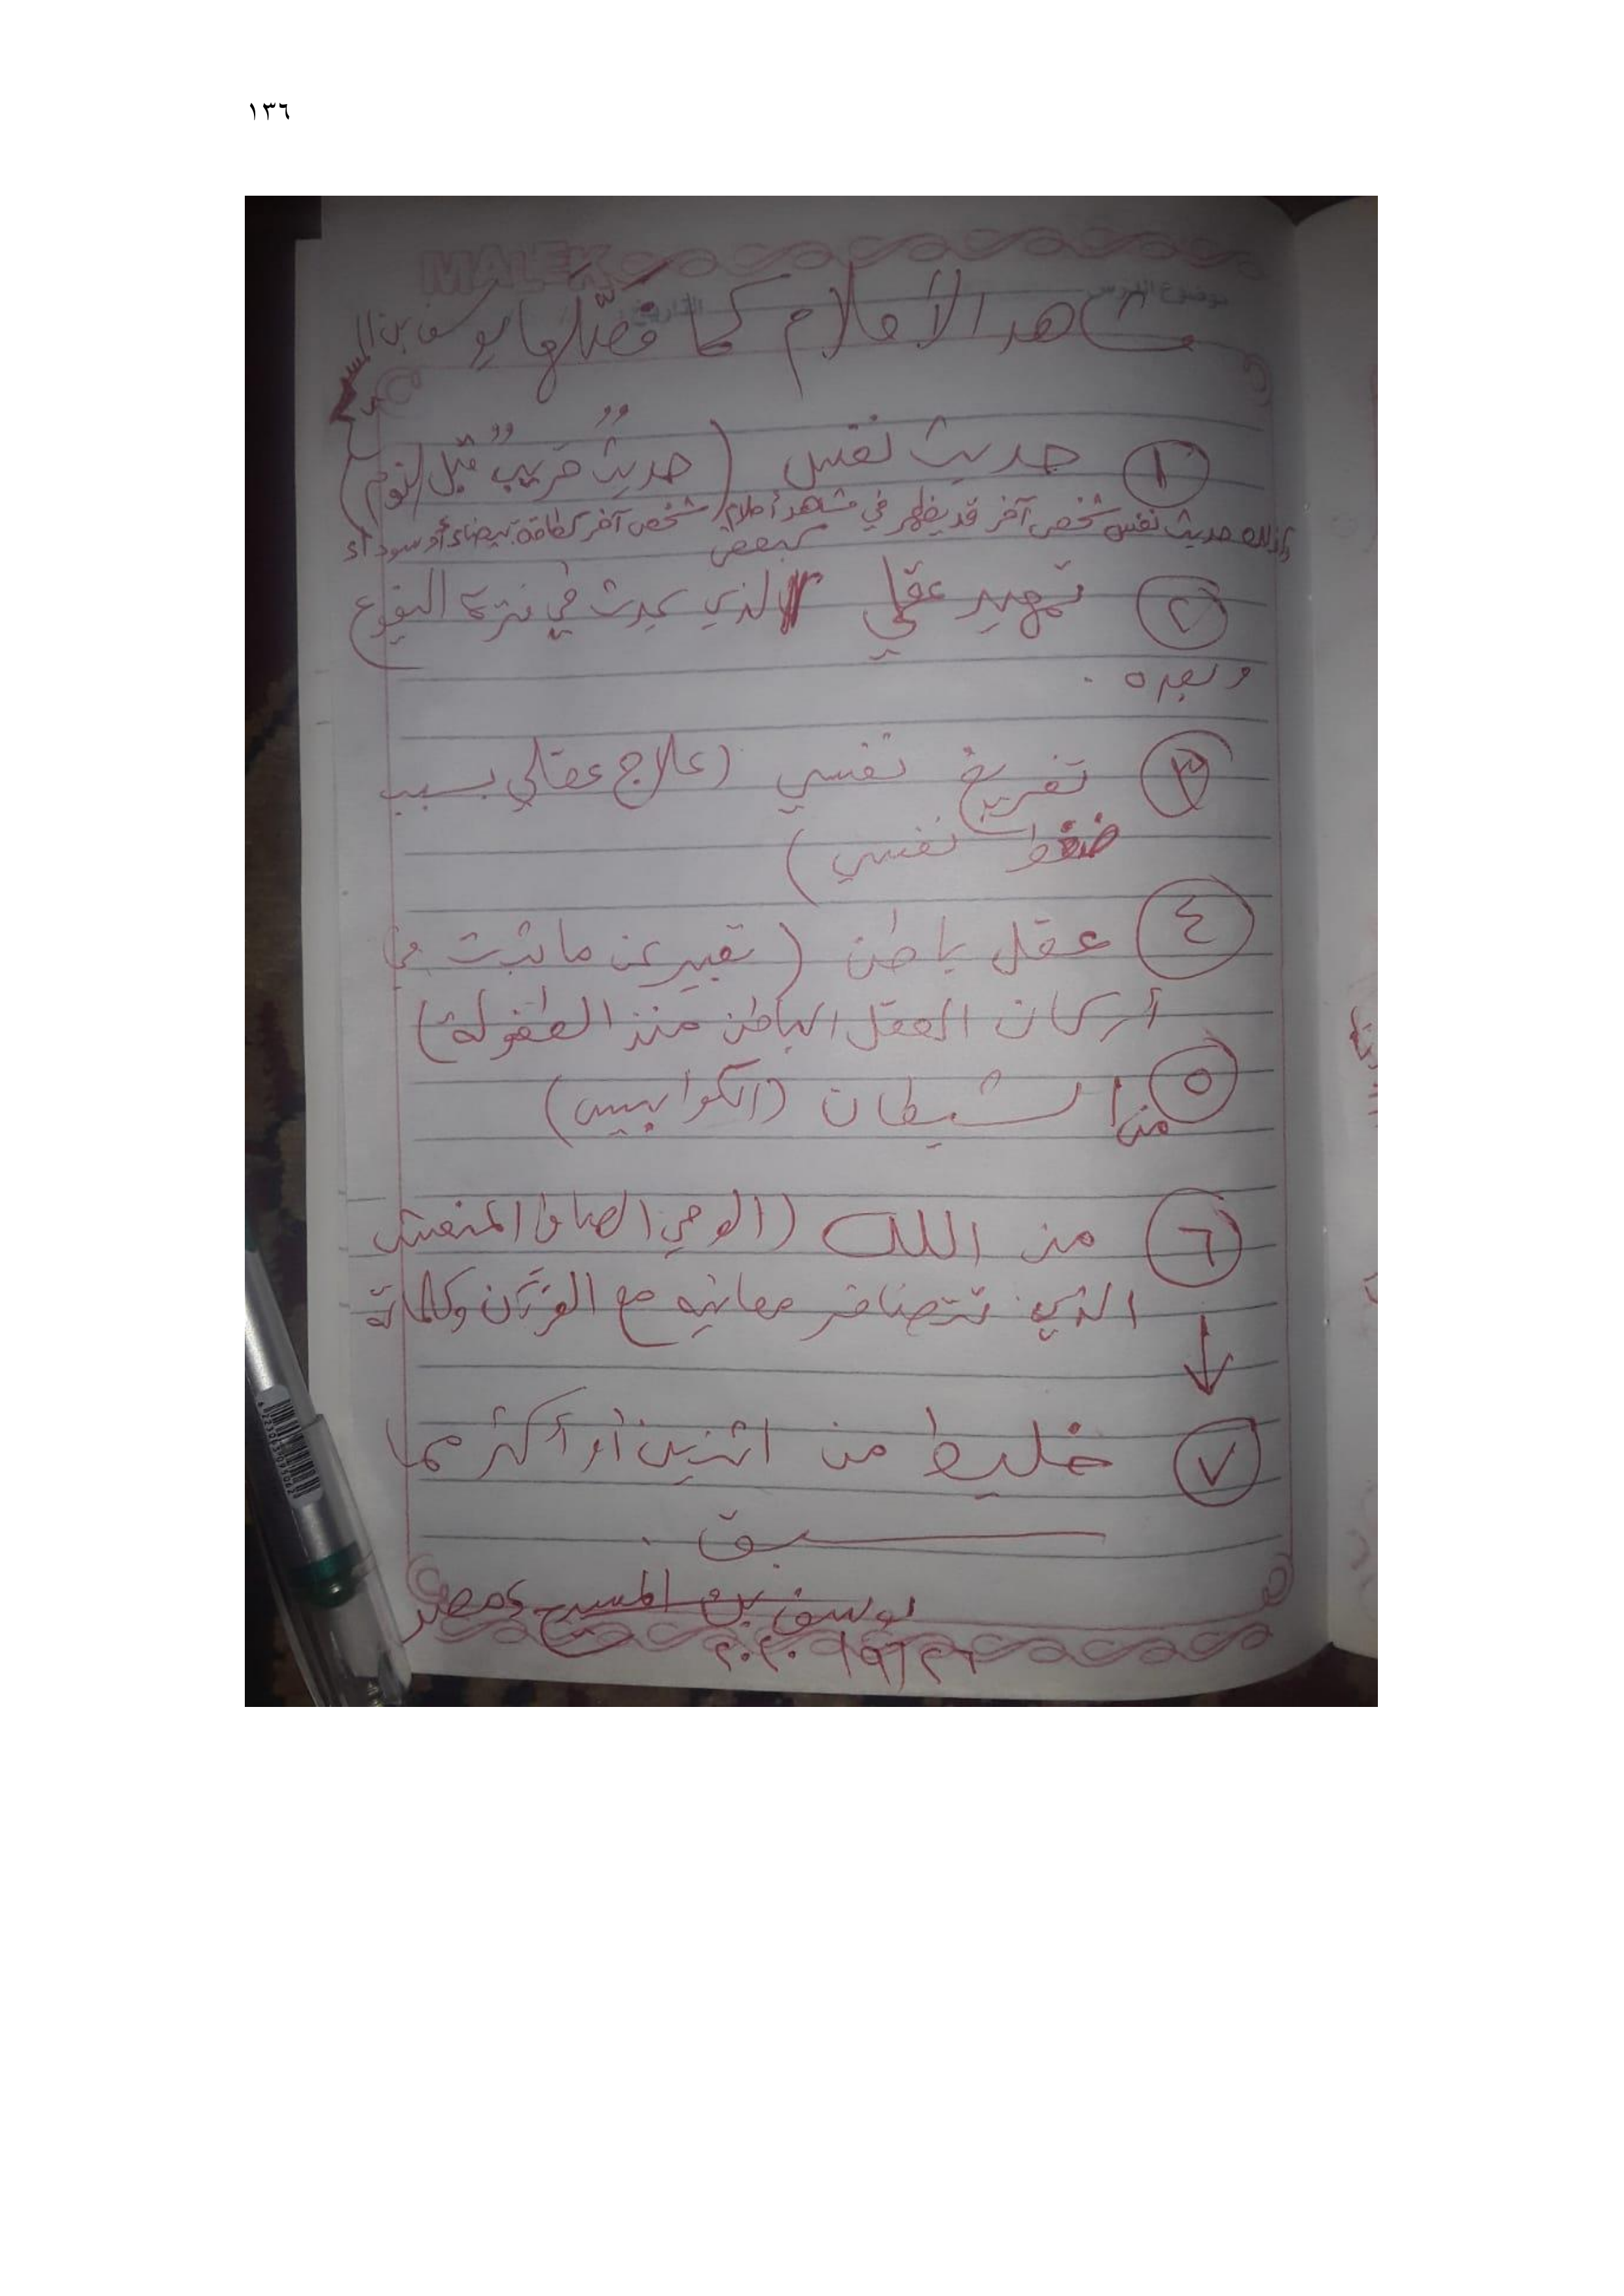 ١٣٦
MALEK
موضوع الدرس
التاريخ
مشاهد الأحلام كما فصّلها يوسف بن المسيح
١ حديث نفس (حديثٌ قريبٌ قبل النوم)
وكذلك حديث نفس شخص آخر قد يظهر في مشهد أحلام شخص آخر كطاقة بيضاء أو سوداء
كبعض
٢ تمهيد عقلي الذي يحدث في فترة
وبعده .
٣ تفريغ نفسي (علاج عقلي بسبب
ضغط نفسي)
٤ عقل باطن (تعبير عن ما ثبت في
أركان العقل الباطن منذ الطفولة)
٥ من الشيطان (الكوابيس)
٦ من الله (الوحي الصافي المنعش
الذي تتضافر معانيه مع القرآن وكلماته
٧ خليط من اثنين أو أكثر مما
سبق .
يوسف بن المسيح مصر
٢٦/٩/٢٠٢٠